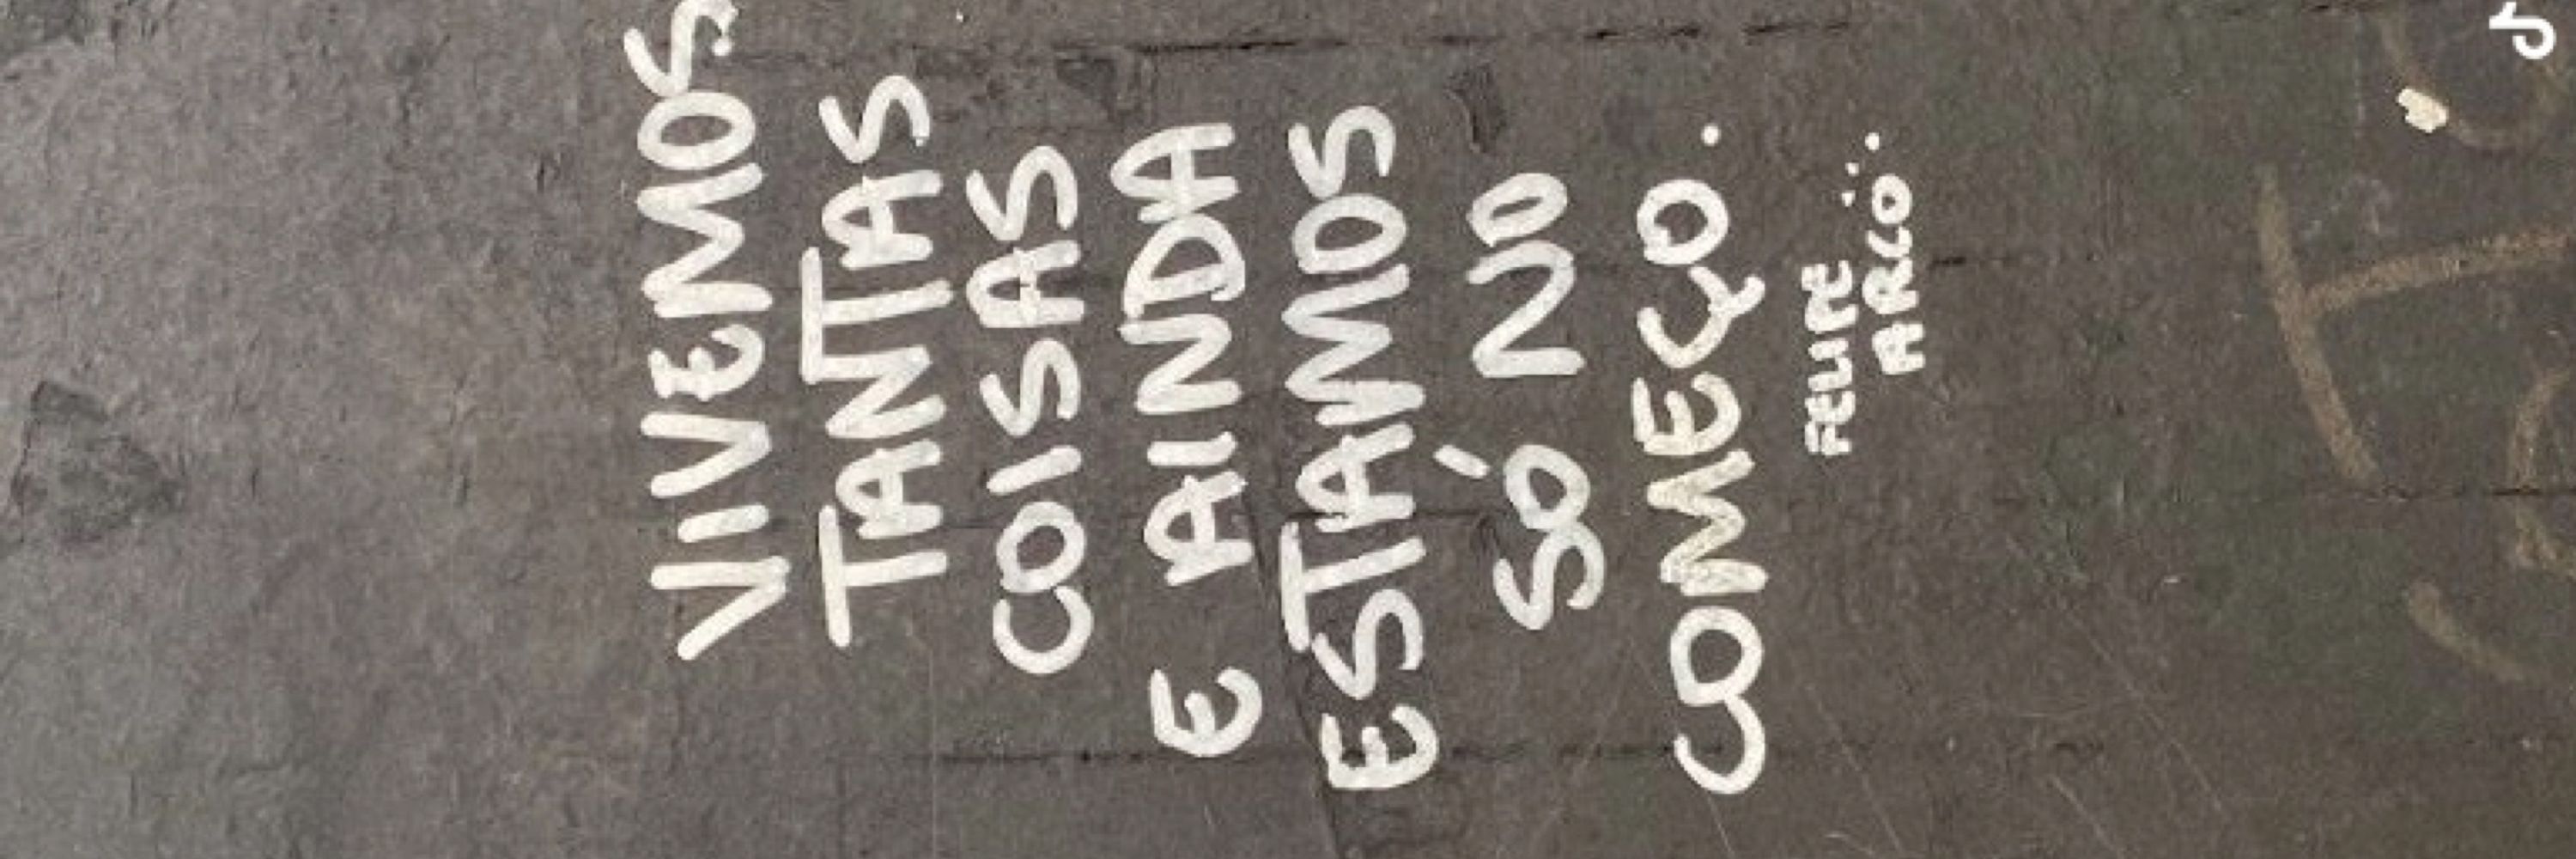 VIVEMOS
TANTAS
COISAS
E AINDA
ESTAMOS
SÓ NO
COMEÇO.
FELIPE
ARCO